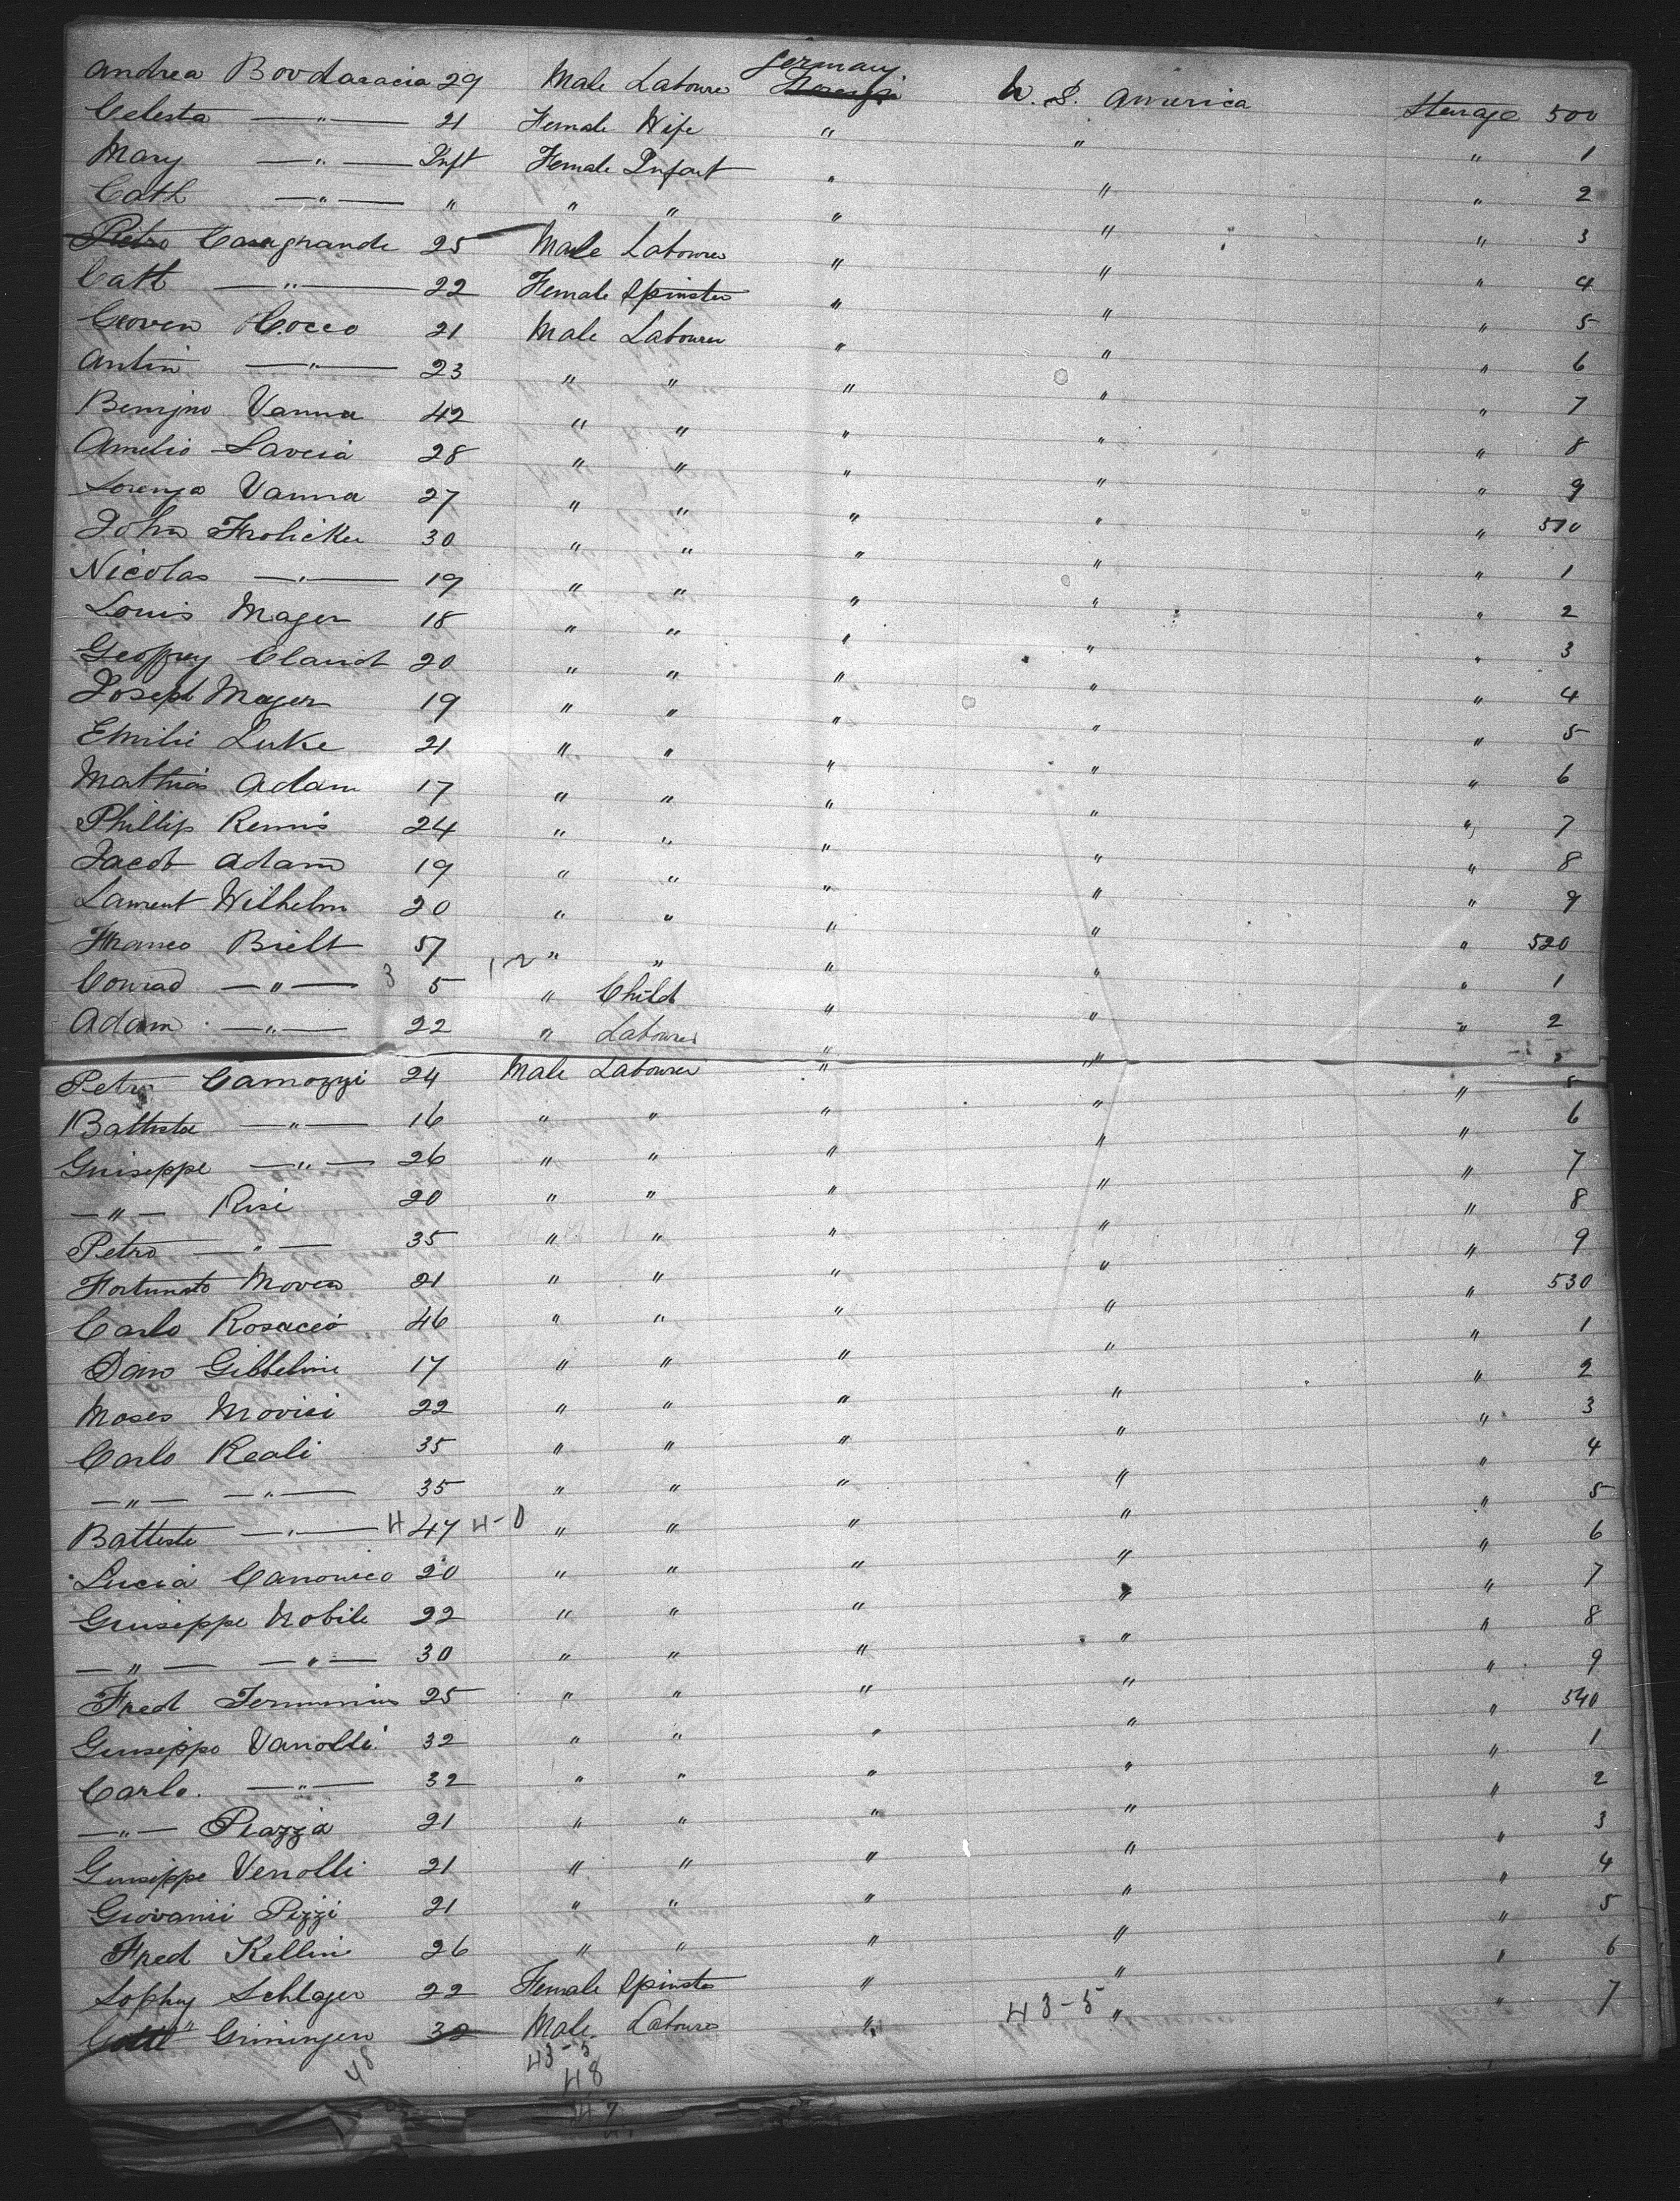 Andrea Bovdaracia 29 Male Labourer Germany U. S. America Steerage 500
Celesta —"— 21 Female Wife " " " 1
Mary —"— Inft Female Infant " " " 2
Cath —"— " " " " " " 3
Pietro Casagrande 25 Male Labourer " " " 4
Cath —"— 22 Female Spinster " " " 5
Cocco 21 Male Labourer " " " 6
Antin —"— 23 " " " " " 7
Benigno Vanna 42 " " " " " 8
Amelio Lavcia 28 " " " " " 9
Lorenzo Vanna 27 " " " " " 510
John Frolicker 30 " " " " " 1
Nicolas —"— 19 " " " " " 2
Louis Mager 18 " " " " " 3
Geoffrey Claud 20 " " " " " 4
Joseph Mager 19 " " " " " 5
Emilie Luke 21 " " " " " 6
Mathias Adam 17 " " " " " 7
Phillip Remis 24 " " " " " 8
Jacob Adam 19 " " " " " 9
Laurent Wilhelm 20 " " " " " 520
Franco Bielt 57 " " " " " 1
Conrad —"— 3 5 1-2 " Child " " " 2
Adam —"— 22 " Labourer " "
Petro Camozzi 24 Male Labourer " " " 5
Battista —"— 16 " " " " " 6
Guiseppe —"— 26 " " " " " 7
—"— Risi 20 " " " " " 8
Petro —"— 35 " " " " " 9
Fortunato Moven 21 " " " " " 530
Carlo Rosacio 46 " " " " " 1
Dan Gibbelini 17 " " " " " 2
Moses Movici 22 " " " " " 3
Carlo Reali 35 " " " " " 4
—"— —"— 35 " " " " " 5
Batteste —"— 4 47 4-0 " " " " " 6
Lucia Canonico 20 " " " " " 7
Giuseppe Nobile 22 " " " " " 8
—"— —"— 30 " " " " " 9
Fred 25 " " " " " 540
Guiseppo Vanolli 32 " " " " " 1
Carlo —"— 32 " " " " " 2
—"— Piazza 21 " " " " " 3
Guiseppe Venolli 21 " " " " " 4
Giovanni Pizzi 21 " " " " " 5
Fred Kellin 26 " " " " " 6
Sophy Schlager 22 Female Spinster " " " 7
Griningen 32 Male Labourer " 43-5 "
48 43-5
48
47